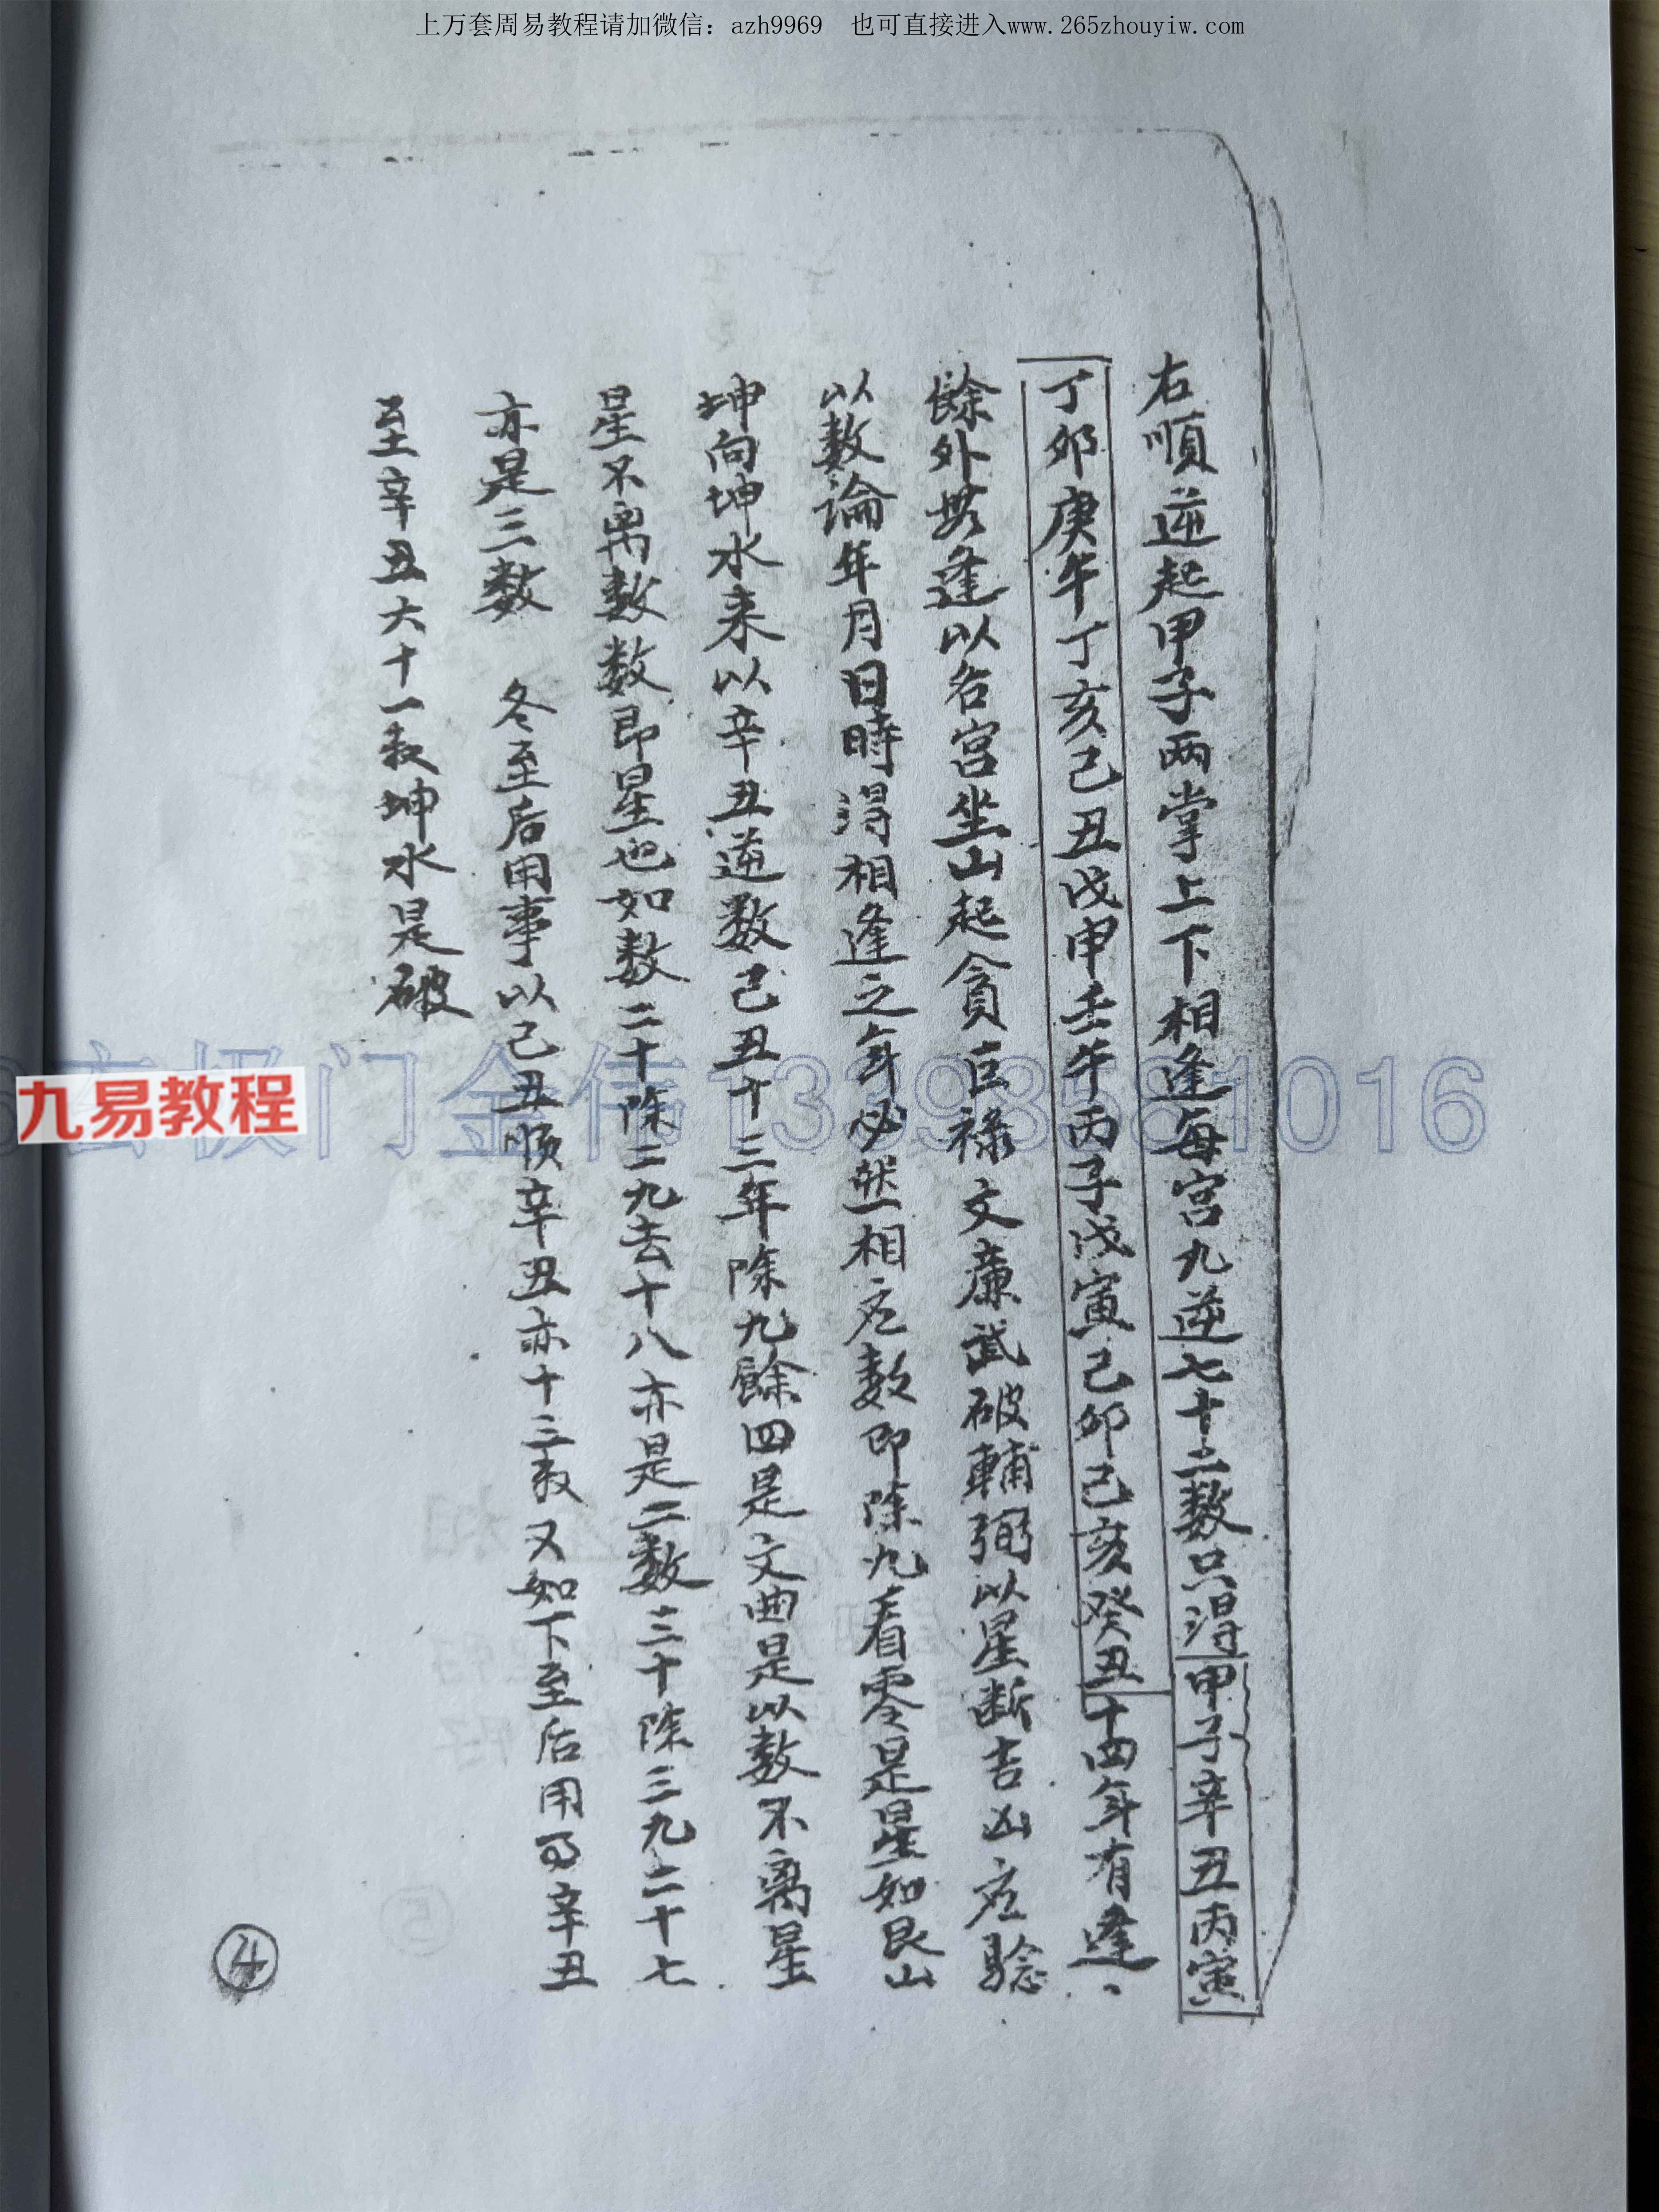 上万套周易教程请加微信：azh9969 也可直接进入www.265zhouyiw.com
右順逆起甲子两掌上下相逢每宫九逆七十二数只淂甲子辛丑丙寅
丁卯庚午丁亥己丑戊申壬午丙子戊寅己卯己亥癸丑十四年有逢、
餘外毋逢以各宫坐山起貪巨禄文廉武破輔弼以星断吉凶应驗
以数論年月日時淂相逢之年必然相应数即除九看零是星如艮山
坤向坤水来以辛丑逆数己丑十三年除九餘四是文曲是以数不离星
星不离数数即星也如数二十除二九去十八亦是二数三十除三九二十七
亦是三数 冬至后用事以己丑顺辛丑亦十三数又如下至后用事辛丑
至辛丑六十一数坤水是破
玄极门金伟13398581016
九易教程
4